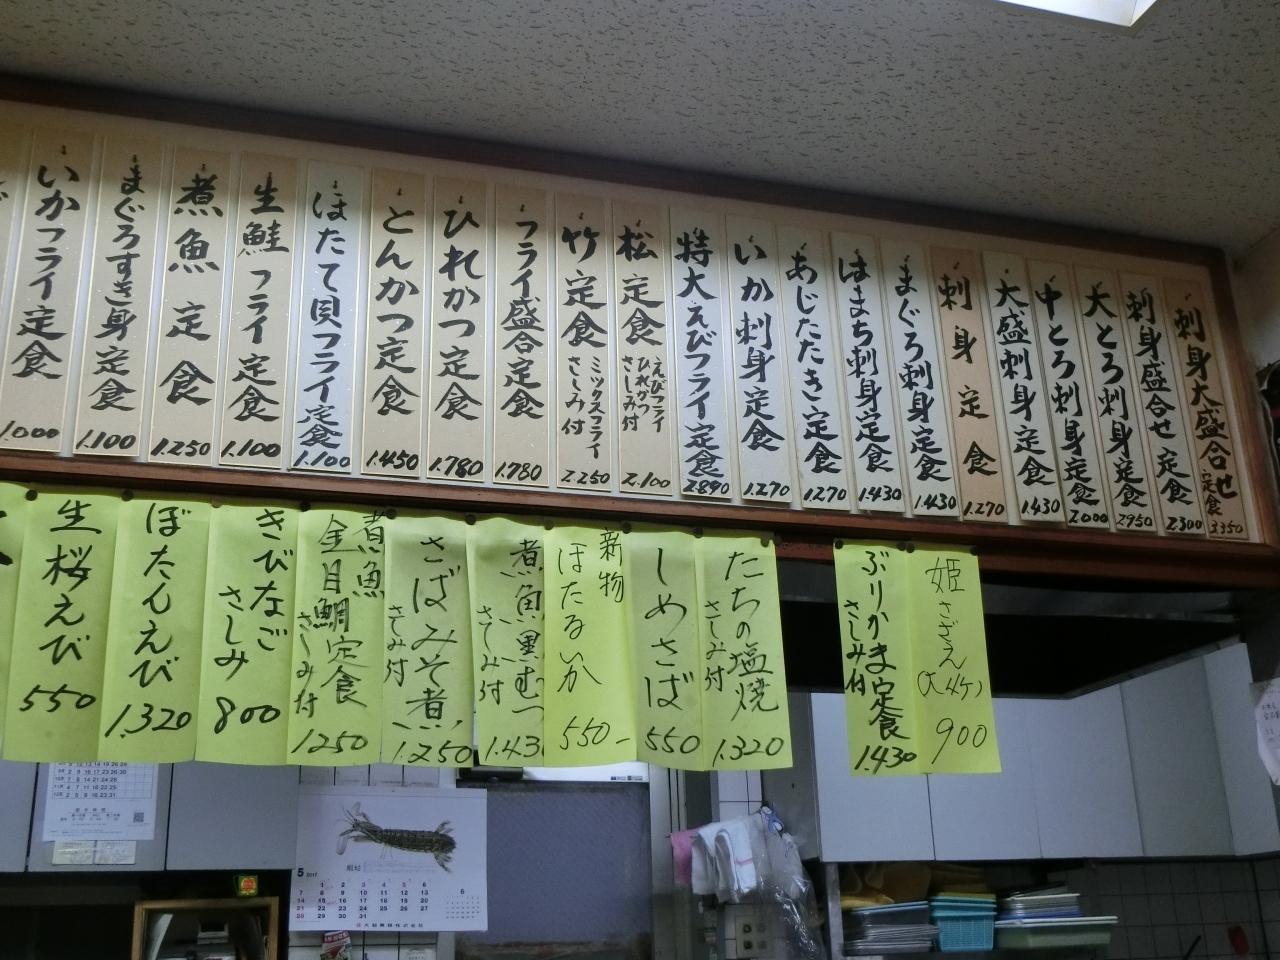 刺身大盛合せ定食 3350
刺身盛合せ定食 2300
大とろ刺身定食 2950
中とろ刺身定食 2000
大盛刺身定食 1430
刺身定食 1.270
まぐろ刺身定食 1.430
はまち刺身定食 1.430
あじたたき定食 1270
いか刺身定食 1.270
特大えびフライ定食 2.890
松定食 えびフライ ひれかつ さしみ付 2.100
竹定食 ミックスフライ さしみ付 2.250
フライ盛合定食 1.780
ひれかつ定食 1.780
とんかつ定食 1.450
ほたて貝フライ定食 1.100
生鮭フライ定食 1.100
煮魚定食 1.250
まぐろすき身定食 1.100
いかフライ定食 1.000
姫さざえ (大4ケ) 900
ぶりかま定食 さしみ付 1.430
たちの塩焼 さしみ付 1.320
しめさば 550
新物 ほたるいか 550
煮魚黒むつ さしみ付 1.43
さばみそ煮 さしみ付 1.250
煮魚 金目鯛定食 さしみ付 1250
きびなご さしみ 800
ぼたんえび 1.320
生桜えび 550
5 2017
1 2 3 4 5 6
7 8 9 10 11 12 13
14 15 16 17 18 19 20
21 22 23 24 25 26 27
28 29 30 31
6